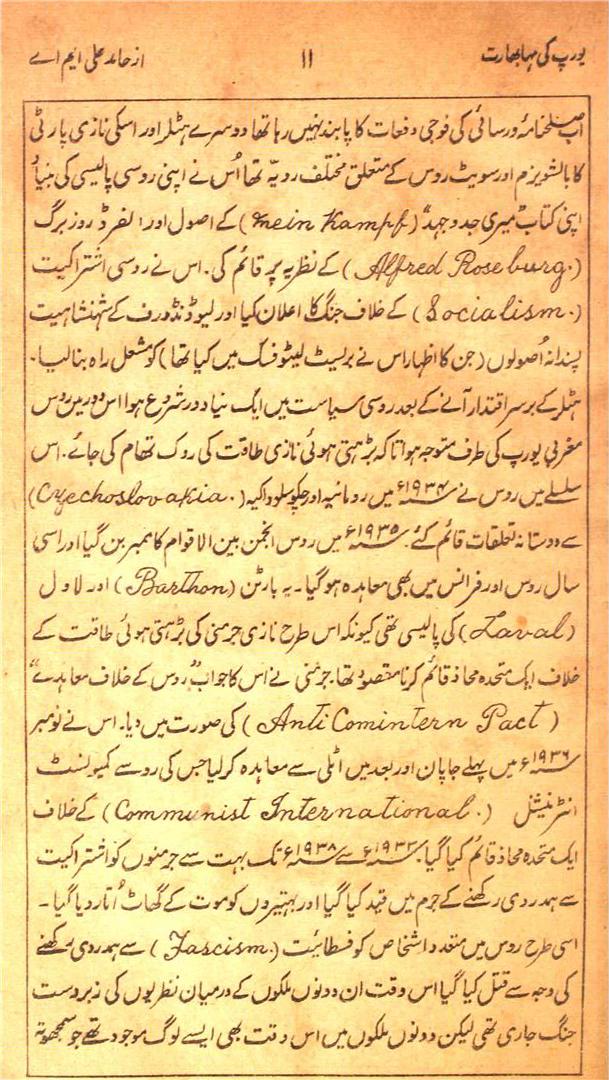 یورپ کی مہابھارت ۱۱ از حامد علی ایم اے
اب صلحنامۂ ورسائی کی فوجی دفعات کا پابند نہیں رہا تھا دوسرے ہٹلر اور اسکی نازی پارٹی
کا بالشویزم اور سویٹ روس کے متعلق مختلف رویہ تھا اُس نے اپنی روسی پالیسی کی بنیاد
اپنی کتاب "میری جدوجہد" (mein Kampf) کے اصول اور الفرڈ روزبرگ
(Alfred Roseburg.) کے نظریہ پر قائم کی۔ اس نے روسی اشتراکیت
(Socialism.) کے خلاف جنگ کا اعلان کیا اور لیوڈنڈورف کے شہنشاہیت
پسندانہ اُصولوں (جن کا اظہار اس نے بریسٹ لیٹوفسک میں کیا تھا) کو مشعل راہ بنالیا۔
ہٹلر کے برسراقتدار آنے کے بعد روسی سیاست میں ایک نیا دور شروع ہوا اس دور میں روس
مغربی یورپ کی طرف متوجہ ہوا تاکہ بڑہتی ہوئی نازی طاقت کی روک تھام کی جائے۔ اس
سلسلے میں روس نے ۱۹۳۴ء میں رومانیہ اور چیکوسلوواکیہ (Czechoslovakia.)
سے دوستانہ تعلقات قائم کئے۔ ۱۹۳۵ء میں روس انجمن بین الاقوام کا ممبر بن گیا اور اسی
سال روس اور فرانس میں بھی معاہدہ ہوگیا۔ یہ بارٹن (Barthon) اور لاول
(Laval) کی پالیسی تھی کیونکہ اس طرح نازی جرمنی کی بڑہتی ہوئی طاقت کے
خلاف ایک متحدہ محاذ قائم کرنا مقصود تھا۔ جرمنی نے اس کا جواب "روس کے خلاف معاہدے"
(Anti Comintern Pact) کی صورت میں دیا۔ اس نے نومبر
۱۹۳۶ء میں پہلے جاپان اور بعد میں اٹلی سے معاہدہ کرلیا جس کی رو سے کمیونسٹ
انٹرنیشنل (Communist International.) کے خلاف
ایک متحدہ محاذ قائم کیا گیا۔ سے ۱۹۳۸ء تک بہت سے جرمنوں کو اشتراکیت
سے ہمدردی رکھنے کے جرم میں قید کیا گیا اور بہتیروں کو موت کے گھاٹ اُتار دیا گیا۔
اسی طرح روس میں متعدد اشخاص کو فسطائیت (Fascism.) سے ہمدردی رکھنے
کی وجہ سے قتل کیا گیا اس وقت ان دونوں ملکوں کے درمیان نظریوں کی زبردست
جنگ جاری تھی لیکن دونوں ملکوں میں اس وقت بھی ایسے لوگ موجود تھے جو سمجھوتہ